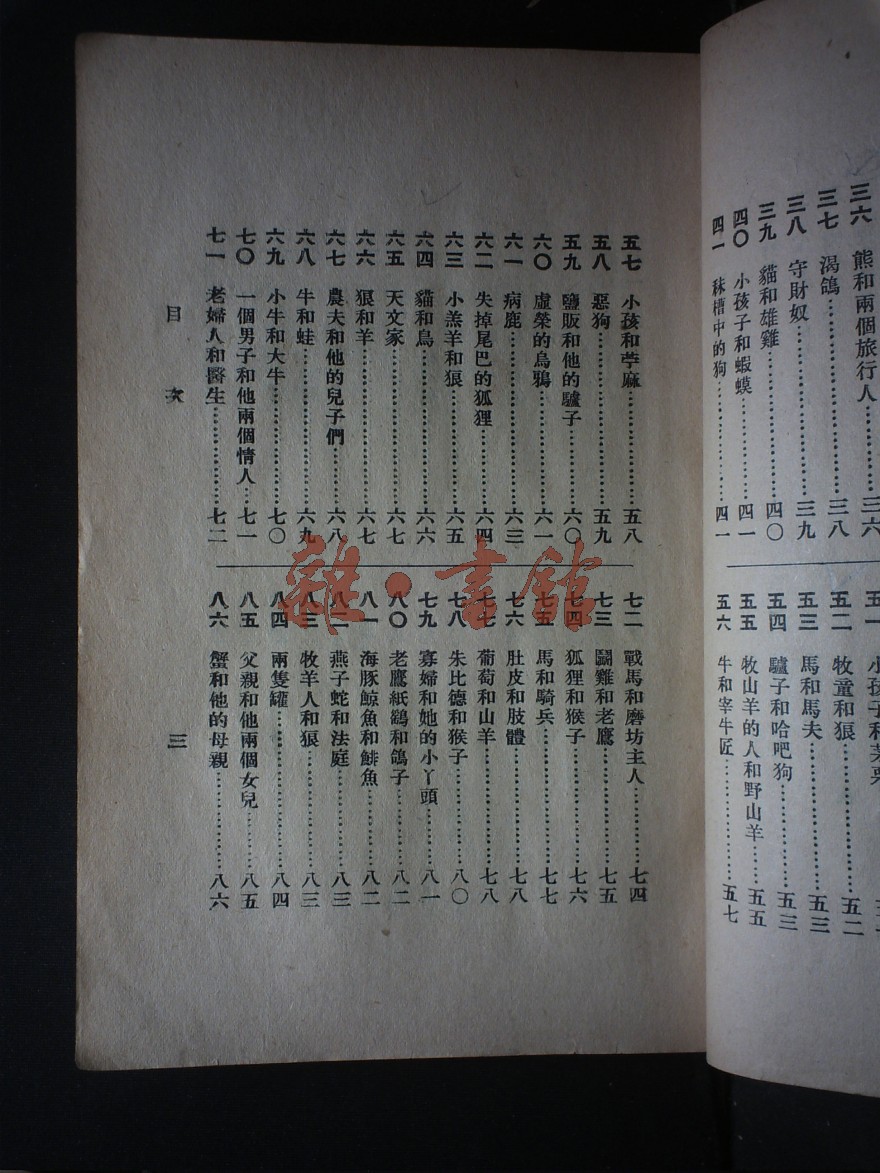 三六 熊和兩個旅行人……三六
三七 渴鴿……三八
三八 守財奴……三九
三九 貓和雄雞……四〇
四〇 小孩子和蝦蟆……四一
四一 秣槽中的狗……四一
五二 牧童和狼……五二
五三 馬和馬夫……五三
五四 驢子和哈吧狗……五三
五五 牧山羊的人和野山羊……五五
五六 牛和宰牛匠……五七
五七 小孩和苧麻……五八
五八 惡狗……五九
五九 鹽販和他的驢子……六〇
六〇 虛榮的烏鴉……六一
六一 病鹿……六三
六二 失掉尾巴的狐狸……六四
六三 小羔羊和狼……六五
六四 貓和鳥……六六
六五 天文家……六七
六六 狼和羊……六七
六七 農夫和他的兒子們……六八
六八 牛和蛙……六九
六九 小牛和大牛……七〇
七〇 一個男子和他兩個情人……七一
七一 老婦人和醫生……七二
七二 戰馬和磨坊主人……七四
七三 鬭雞和老鷹……七五
七四 狐狸和猴子……七六
七五 馬和騎兵……七七
七六 肚皮和肢體……七八
七七 葡萄和山羊……七八
七八 朱比德和猴子……八〇
七九 寡婦和她的小丫頭……八一
八〇 老鷹紙鷂和鴿子……八二
八一 海豚鯨魚和鯡魚……八二
八二 燕子蛇和法庭……八三
八三 牧羊人和狼……八三
八四 兩隻罐……八四
八五 父親和他兩個女兒……八五
八六 蟹和他的母親……八六
目次
三
雜·書館